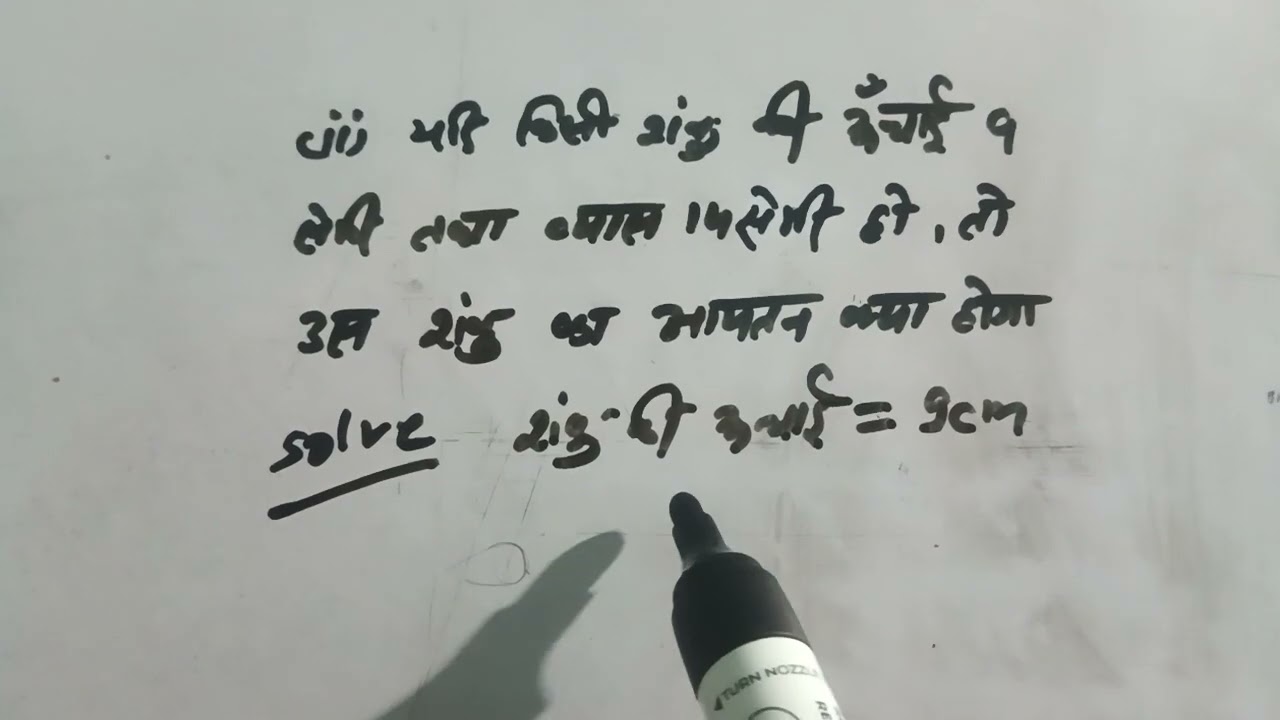 (ii) यदि किसी शंकु की ऊँचाई 9
सेमी तथा व्यास 14 सेमी हो, तो
उस शंकु का आयतन क्या होगा
solve शंकु की ऊचाई = 9cm
TURN NOZZL
RE